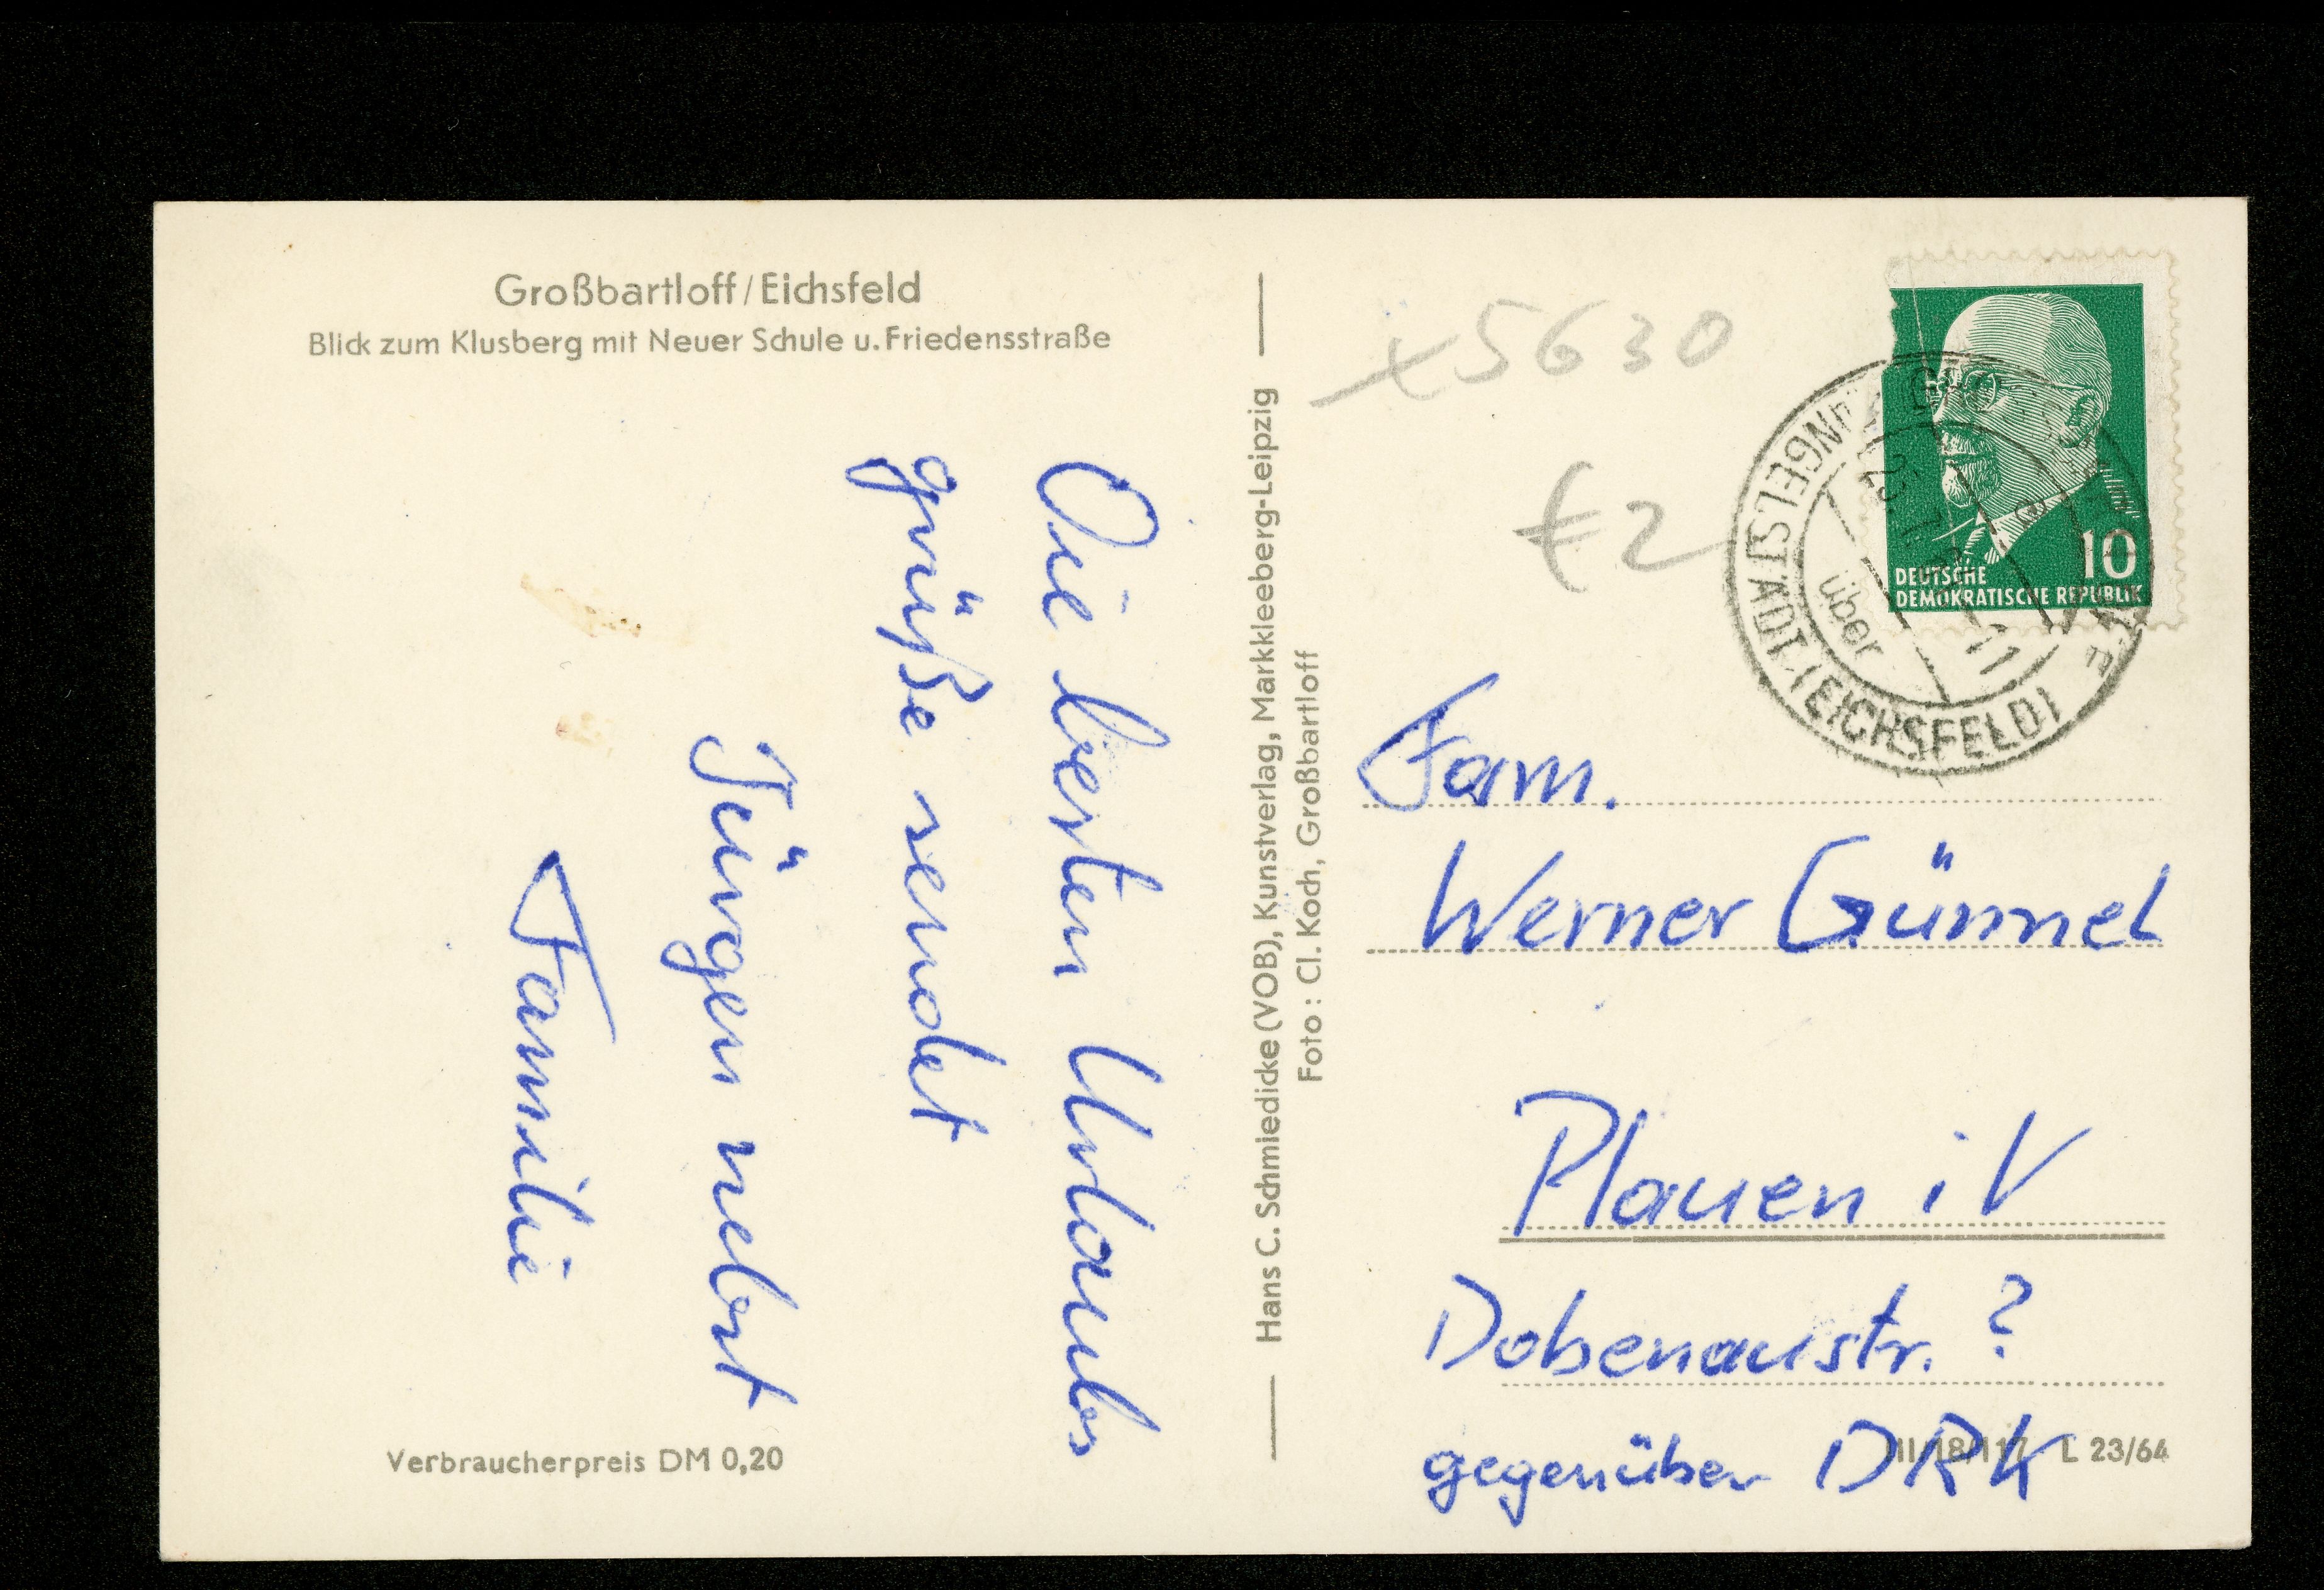 Großbartloff/Eichsfeld
Blick zum Klusberg mit Neuer Schule u. Friedensstraße
Die besten Urlaubs
grüße sendet
Jürgen nebst
Familie
Verbraucherpreis DM 0,20
Hans C. Schmiedicke (VOB), Kunstverlag, Markkleeberg-Leipzig
Foto: Cl. Koch, Großbartloff
5630
€ 2
10
DEUTSCHE
DEMOKRATISCHE REPUBLIK
über
INGELSTÄDT (EICHSFELD)
11
Fam.
Werner Günnel
Plauen i V
Dobenaustr. ?
gegenüber DRK
III/18/117 L 23/64